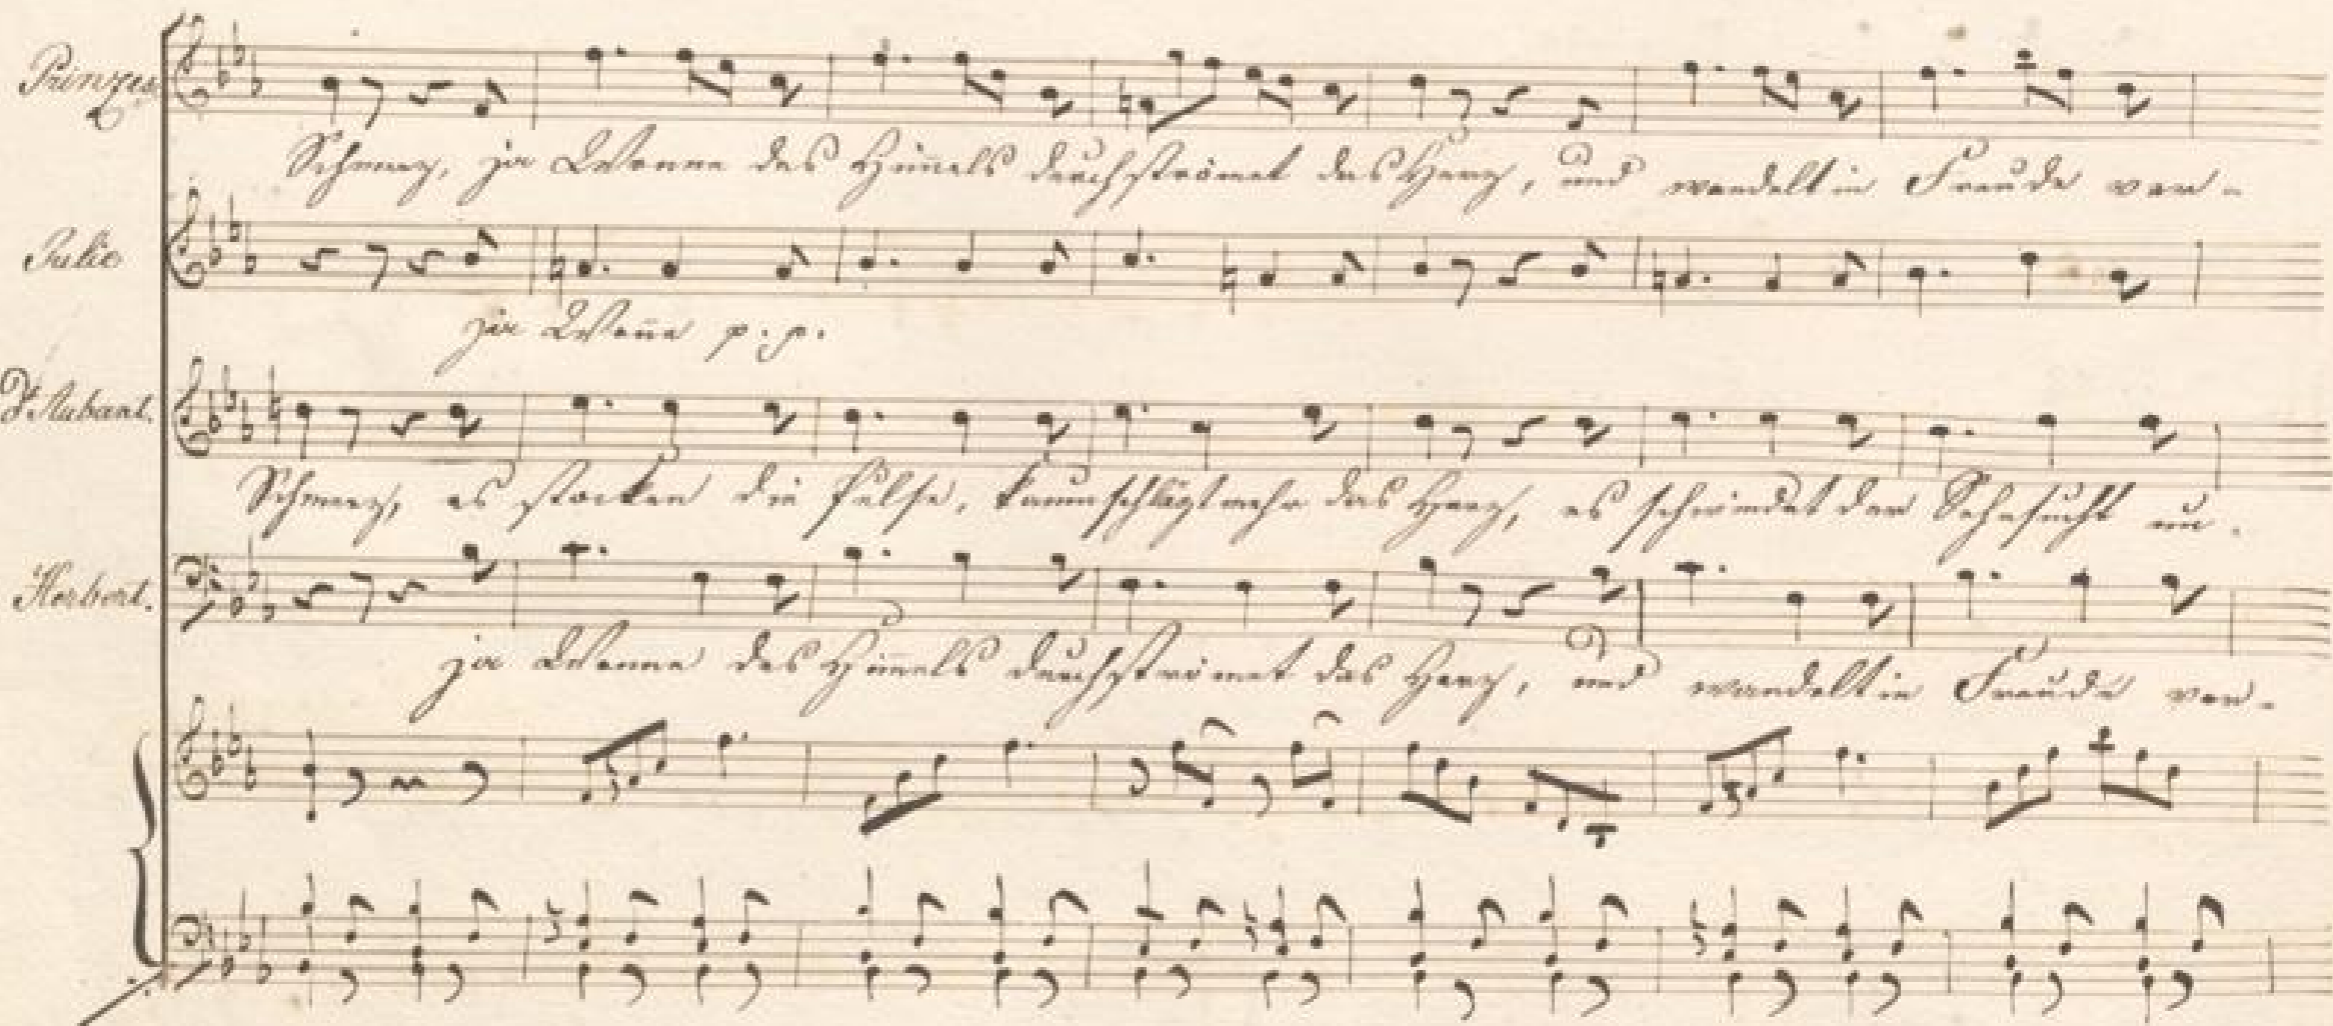 Prinzes.
Schmerz, ja Wonne des Himels durchströmet das Herz, und wandelt in Freude ver-
Julie
ja Wone p. p.
D'Aubant.
Schmerz, es stocken die Pulse, kaum schlägt mehr das Herz, es schwindet der Sehnsucht un-
Herbert.
ja Wonne des Himels durchströmet das Herz, und wandelt in Freude ver-